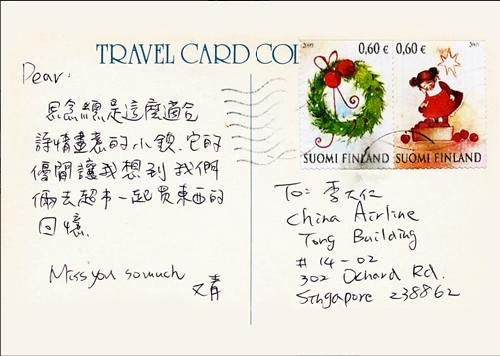 TRAVEL CARD COL
2009
0,60 €
0,60 €
SUOMI FINLAND
SUOMI FINLAND
Dear:
思念總是這麼適合
詩情畫意的小鎮.它的
優閒讓我想到我們
倆去超市一起買東西的
回憶.
Miss you so much
又青
To: 李大仁
China Airline
Tong Building
# 14-02
302 Ochard Rd.
Singapore 238862